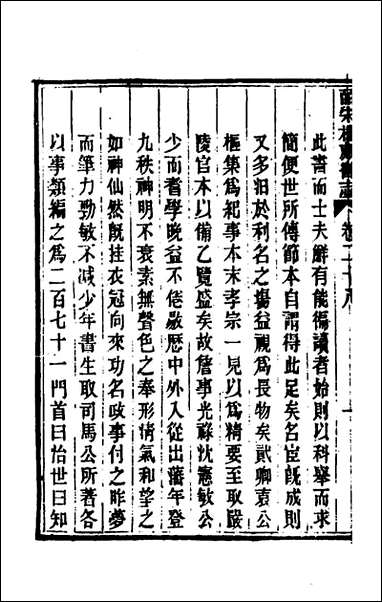 皕宋樓藏書志 卷二十八
此書而士夫鮮有能徧讀者始則以科舉而求
簡便世所傳節本自謂得此足矣名宦旣成則
又多汨於利名之塲益視爲長物矣貳卿袁公
樞集爲紀事本末孝宗一見以爲精要至取嚴
陵官本以備乙覽盛矣故詹事光祿沈憲敏公
少而耆學晚益不倦敭歷中外入從出藩年登
九秩神明不衰素無聲色之奉形情氣和望之
如神仙然旣挂衣冠向來功名政事付之昨夢
而筆力勁敏不减少年書生取司馬公所著各
以事類編之爲二百七十一門首曰治世曰知